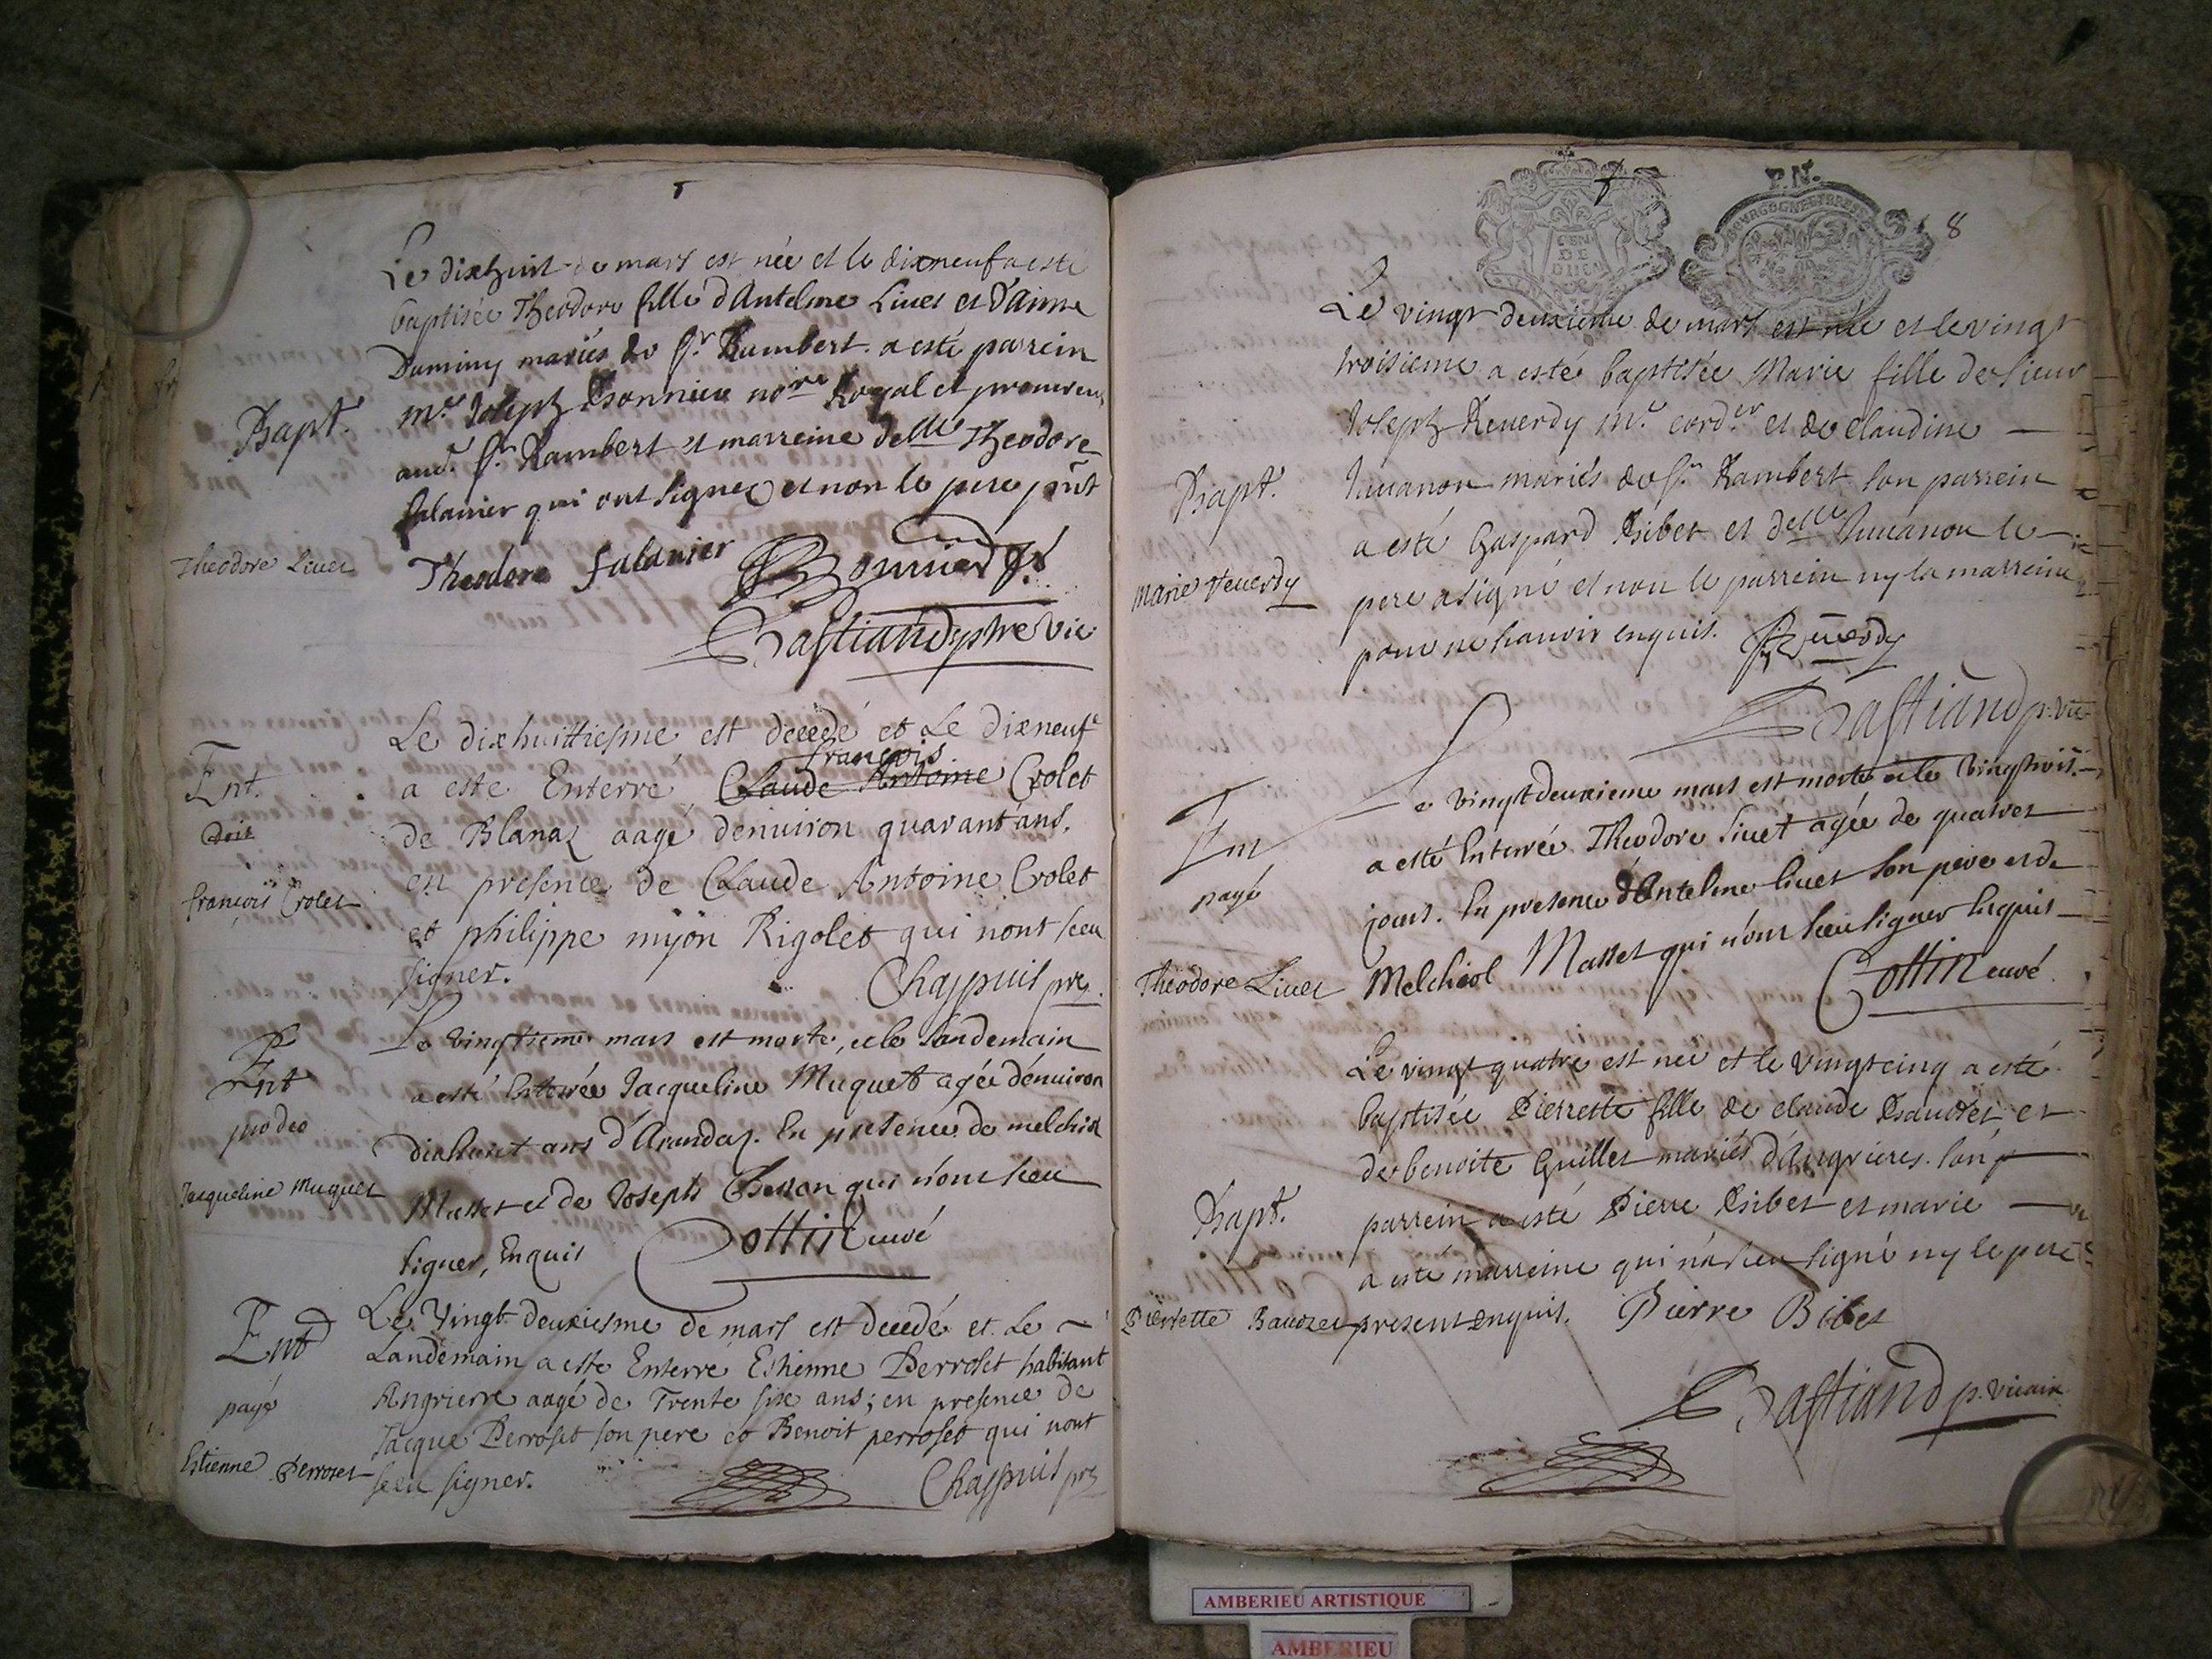 Le dixhuit de mars est née et le dixneuf a esté
baptisée Theodore fille d'Antelme Liuet et d'Anne
Duminy mariés de St. Rambert. a esté parrein
Mre. Joseph Bonnier nore Royal et procureur
aud. St. Rambert et marreine delle Theodore
Salanier qui ont signez et non le pere pñt
Bapt.
Theodore Liuet
Theodore Salanier Bonnier
Bastiand ptre vic
Le dixhuittiesme est decedé et Le dixneufe
françois
a este Enterré Claude Antoine Crolet
de Blanaz aagé denuiron quarant ans,
en presence de Claude Antoine Crolet
et philippe mjon Rigolet qui nont sceu
signer. Chappuis pre.
Ent.
doit
françois Crolet
Le vingtieme mars est morte, et le landemain
a esté Enterrée Jacqueline Muquet agée d'enuiron
dixhuict ans d'Arandaz. En presence de melchiol
Masset et de Joseph Chesson qui n'ont sceu
signer, Enquis Cottin curé
Ent
pro deo
Jacqueline Muquet
Le Vingt deuxiesme de mars est decedé et Le
Landemain a este Enterré Estienne Perroset habitant
Angrierre aagé de Trente six ans; en presence de
Jacque Perroset son pere et Benoit perroset qui nont
sceu signer. Chappuis pre
Ent
payé
Estienne Perroset
P.N.
BOURGOGNE ET BRESSE
GEN
DE
DIJON
8
Le vingt deuxieme de mars est née et le vingt
troisieme a esté baptisée Marie fille de sieur
Joseph Reuerdy Me. corder et de claudine
Juuanon mariés de St. Rambert son parrein
a esté Gaspard Bibet et delle Juuanon le
pere a signé et non le parrein ny la marreine
pour ne sçauoir enquis. Reuerdy
Bastiand p. vic
Bapt.
Marie Reuerdy
Le vingtdeuxieme mars est morte et le vingttrois.
a esté Enterrée Theodore Liuet agée de quatres
jours. En presence d'Antelme liuet son pere et de
Melchiol Masset qui n'ont sceu signer Enquis
Cottin curé
Ent
payé
Theodore Liuet
Le vingt quatre est née et le vingtcinq a esté
baptisée Pierrette fille de claude Baudet et
de benoite Guillet mariés d'Angrieres. son p
parrein a esté Pierre Bibet et marie
a esté marreine qui n'a sceu signé ny le pere
present enquis. Pierre Bibet
Bastiand p. vicaire
Bapt.
Pierrette Baudet
AMBERIEU ARTISTIQUE
AMBERIEU